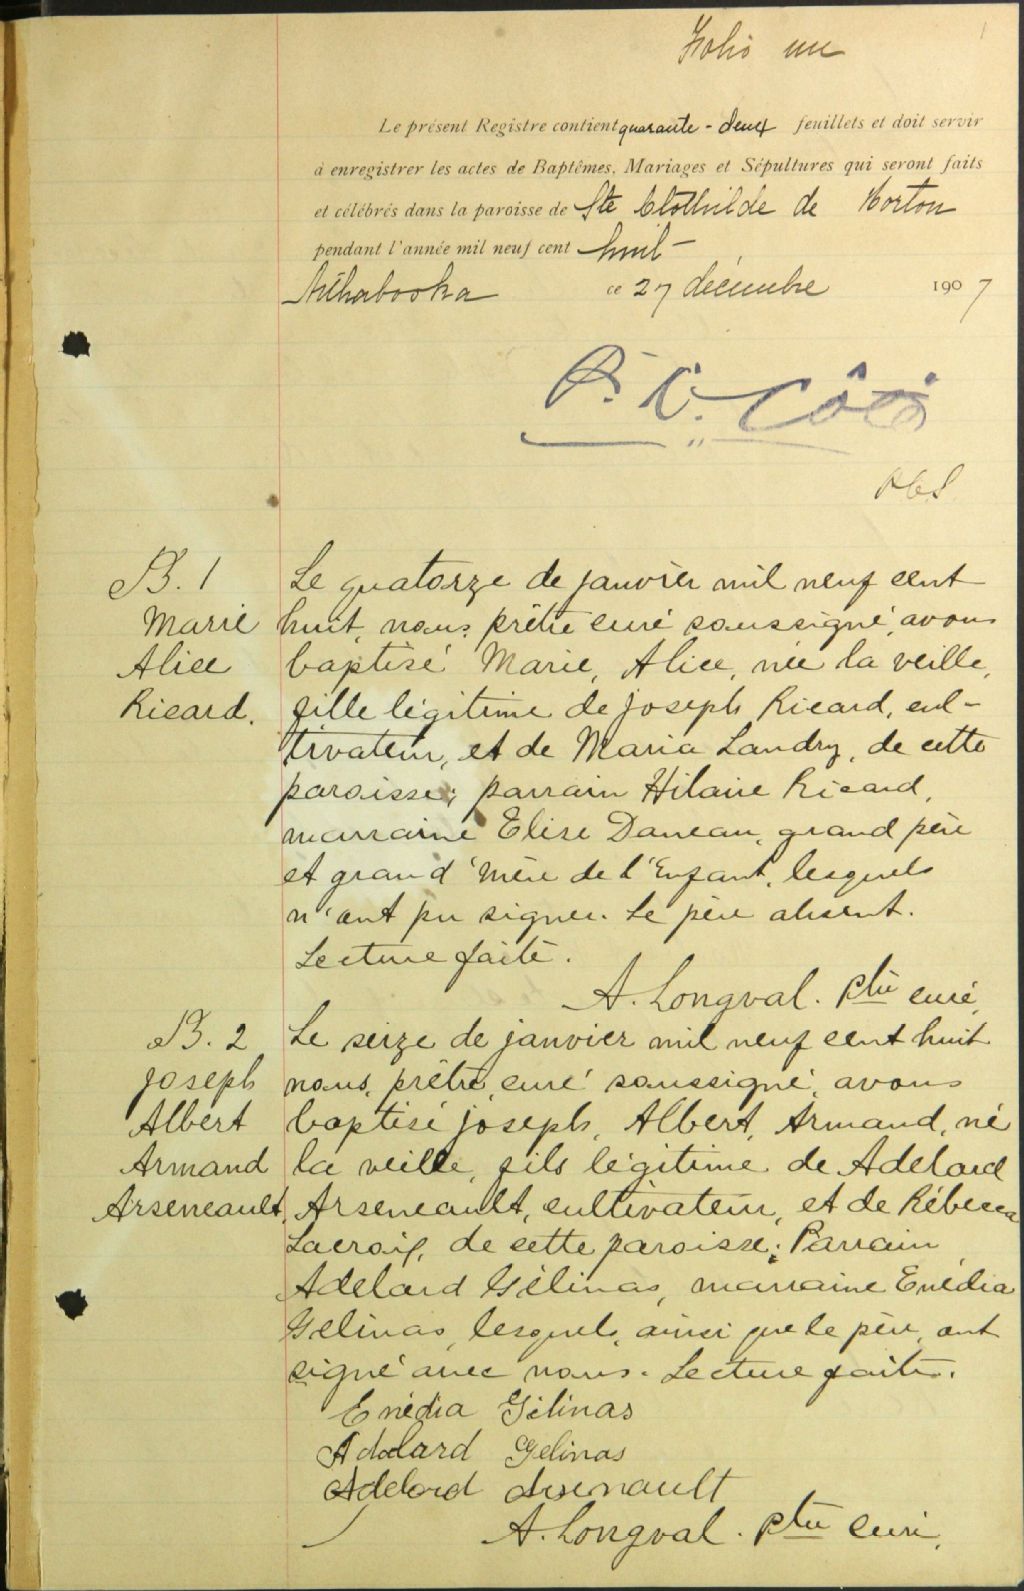 Folio un
1
Le présent Registre contient quarante-deux feuillets et doit servir
à enregistrer les actes de Baptêmes, Mariages et Sépultures qui seront faits
et célébrés dans la paroisse de Ste Clothilde de Horton
pendant l'année mil neuf cent huit -
Arthabaska ce 27 décembre 1907
P. C. S.
B. 1
Marie
Alice
Ricard.
Le quatorze de janvier mil neuf cent
huit, nous, prêtre curé soussigné, avons
baptisé Marie, Alice, née la veille,
fille légitime de Joseph Ricard, cul-
tivateur, et de Maria Landry, de cette
paroisse; parrain Hilaire Ricard,
marraine Elise Daneau, grand père
et grand'mère de l'Enfant, lesquels
n'ont pu signer. Le père absent.
Lecture faite.
A. Longval. Ptre curé,
B. 2
Joseph
Albert
Armand
Arseneault,
Le seize de janvier mil neuf cent huit
nous, prêtre, curé soussigné, avons
baptisé Joseph, Albert, Armand, né
la veille, fils légitime de Adelard
Arseneault, cultivateur, et de Rébecca
Lacroix, de cette paroisse; Parrain
Adelard Gélinas, marraine Enédia
Gelinas, lesquels, ainsi que le père, ont
signé avec nous. Lecture faite.
Enédia Gélinas
Adelard Gelinas
Adelord Arsenault
A. Longval. Ptre curé,